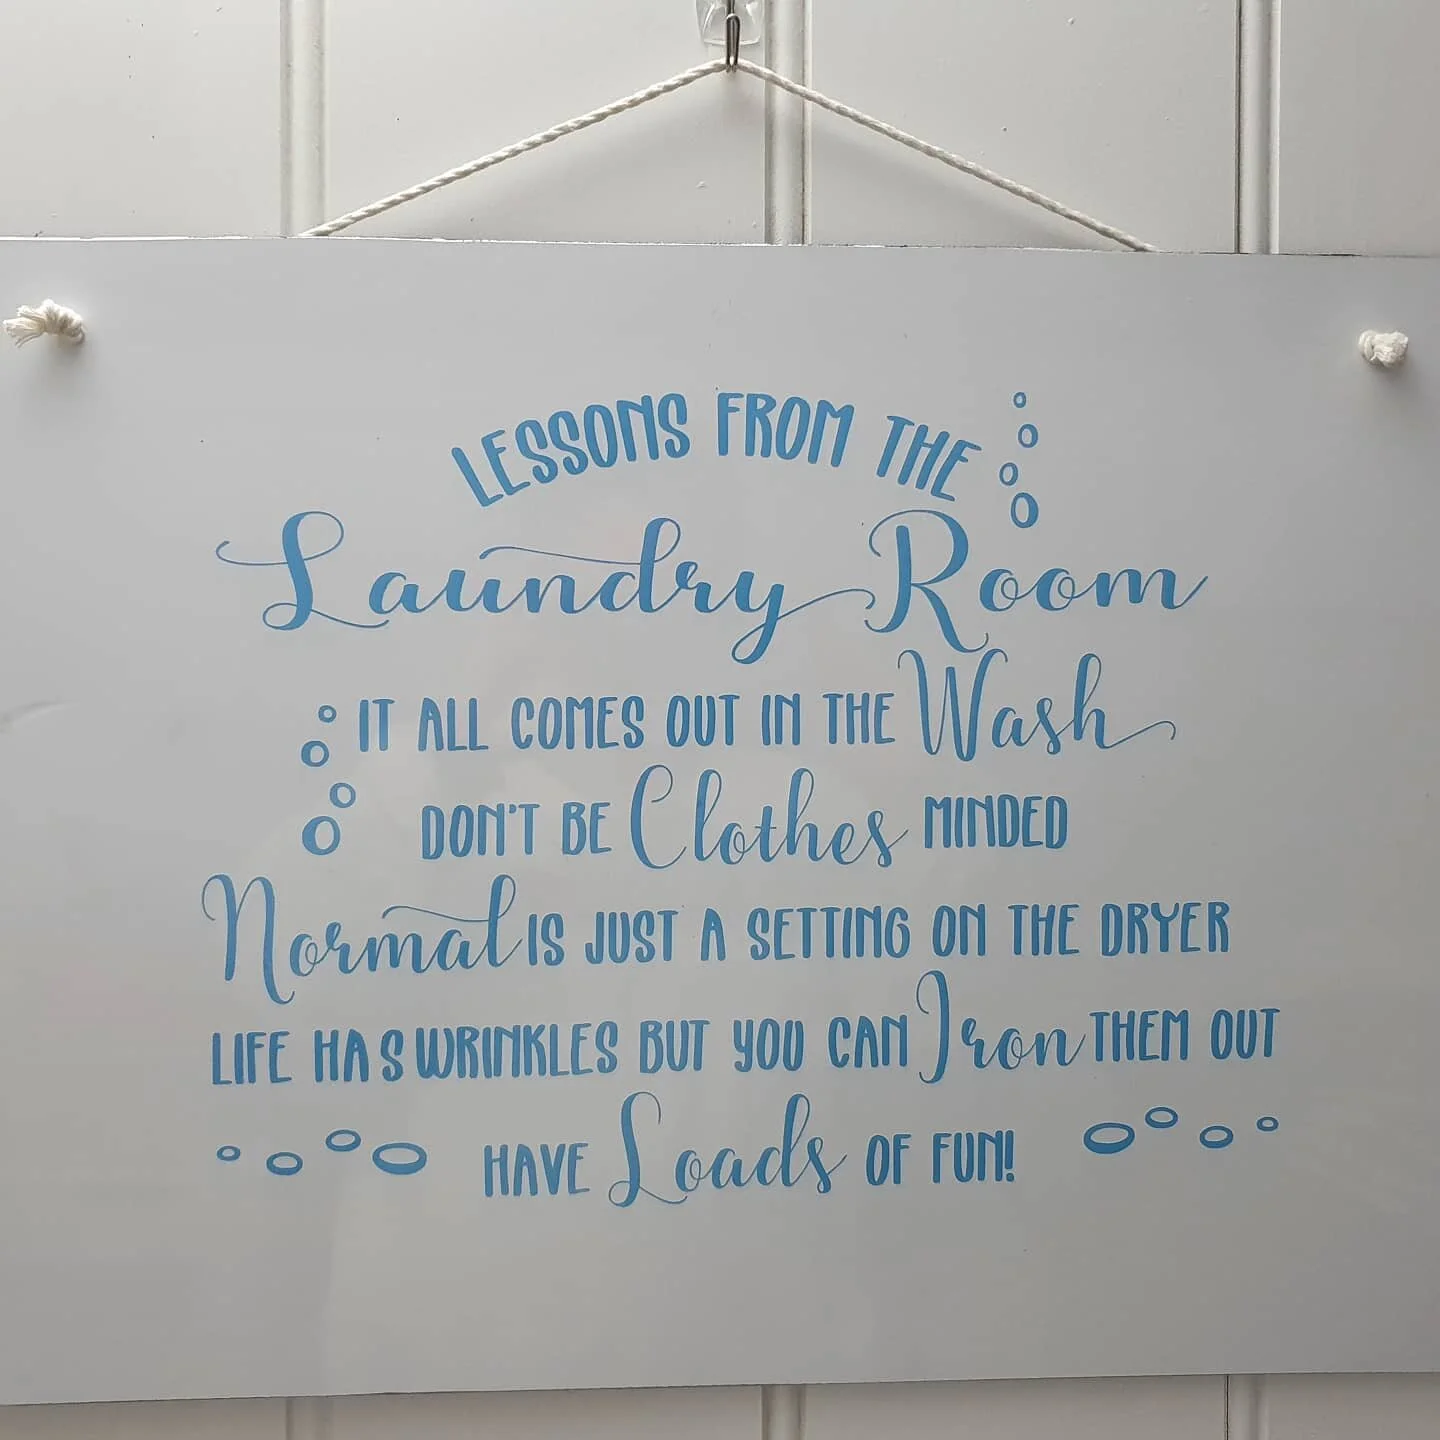 LESSONS FROM THE
Laundry Room
IT ALL COMES OUT IN THE Wash
DON'T BE Clothes MINDED
Normal IS JUST A SETTING ON THE DRYER
LIFE HAS WRINKLES BUT YOU CAN Iron THEM OUT
HAVE Loads OF FUN!